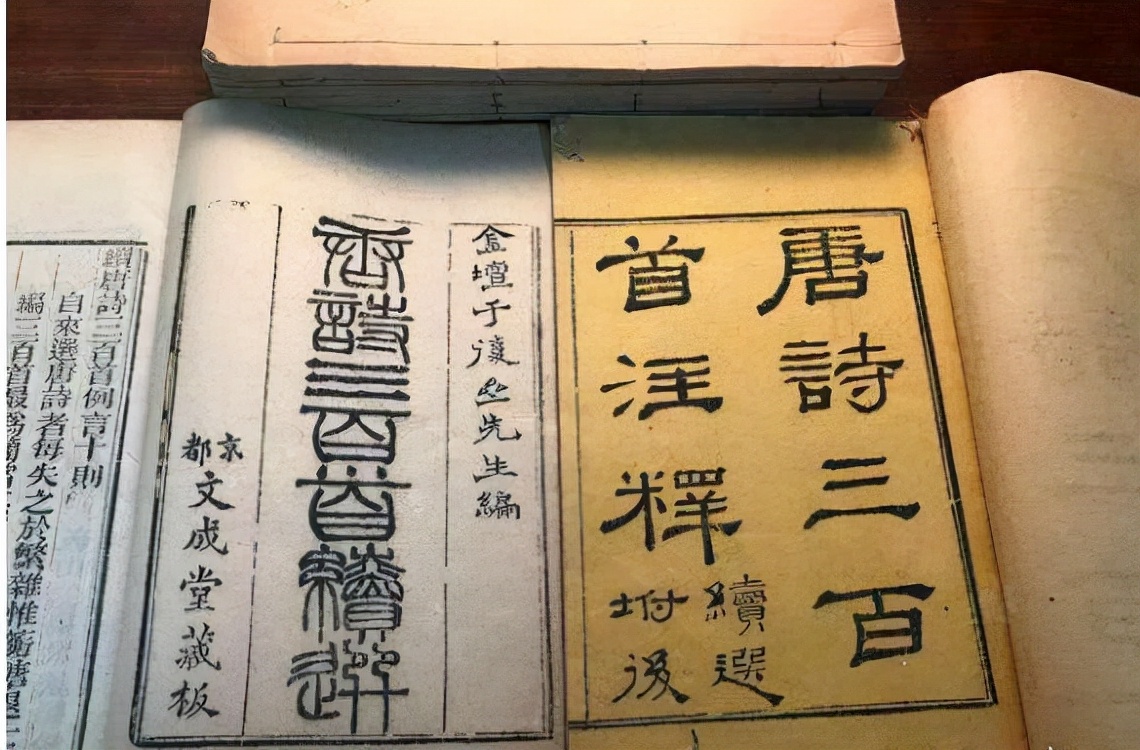 唐詩三百
首注釋
續選
坿後
金壇于復亝先生編
唐詩三百首續選
京都文成堂藏板
續唐詩三百首例言十則
自來選唐詩者每失之於繁雜惟蘅塘退士
編三百首最爲簡